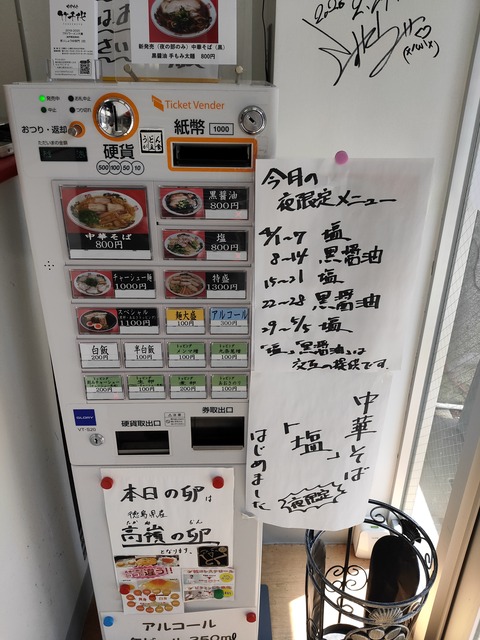 新発売（夜の部のみ）中華そば（黒）
黒醤油 手もみ太麺 800円
発売中
おつり・返却
ただいまの金額
Ticket Vender
紙幣
1000
硬貨
500 100 50 10
中華そば
800円
黒醤油
800円
塩
800円
チャーシュー麺
1000円
特盛
1300円
スペシャル
1100円
麺大盛
100円
アルコール
300円
白飯
200円
半白飯
100円
100円
100円
200円
100円
200円
100円
GLORY
VT-S20
硬貨取出口
券取出口
今月の
夜限定メニュー
4/1~7 塩
8~14 黒醤油
15~21 塩
22~28 黒醤油
29~5/5 塩
「塩」「黒醤油」は
交互の提供です。
中華そば
「塩」
はじめました
夜限定
本日の卵は
徳島県産
たかね らん
高嶺の卵
となります。
アルコール